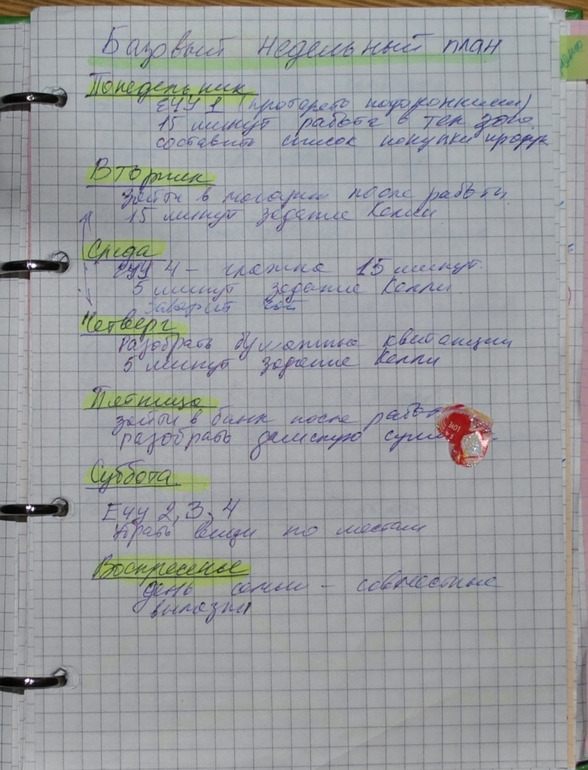 Базовый недельный план
Понедельник
ЕУУ 1 (протереть подоконники)
15 минут работа в тен зоне
составить список покупки
Вторник
зайти в магазин после работы
15 минут задание Келли
Среда
ЕУУ 4 – глажка 15 минут.
5 минут задание Келли
заварить чай
Четверг
разобрать бумажки квитанции
5 минут задание Келли
Пятница
зайти в банк после
разобрать дамскую
Суббота
ЕУУ 2, 3, 4
Убрать вещи по местам
Воскресенье
день семьи – совместные
вылазки